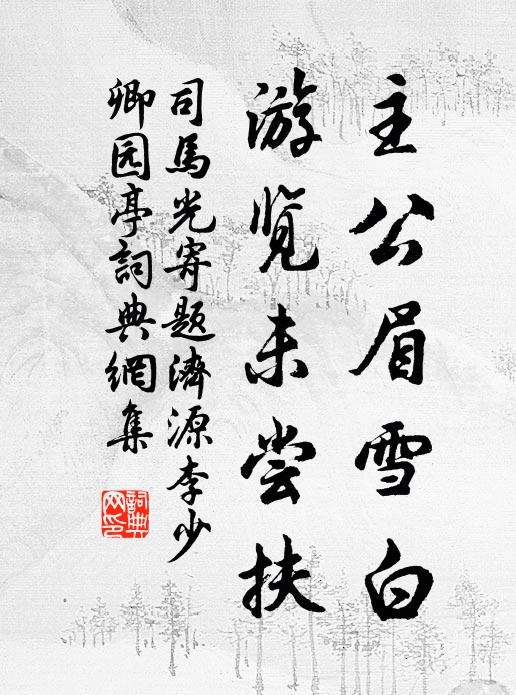 主公眉雪白
游览未尝扶
司馬光寄题濟源李少
卿园亭詞典網集
詞典
网印